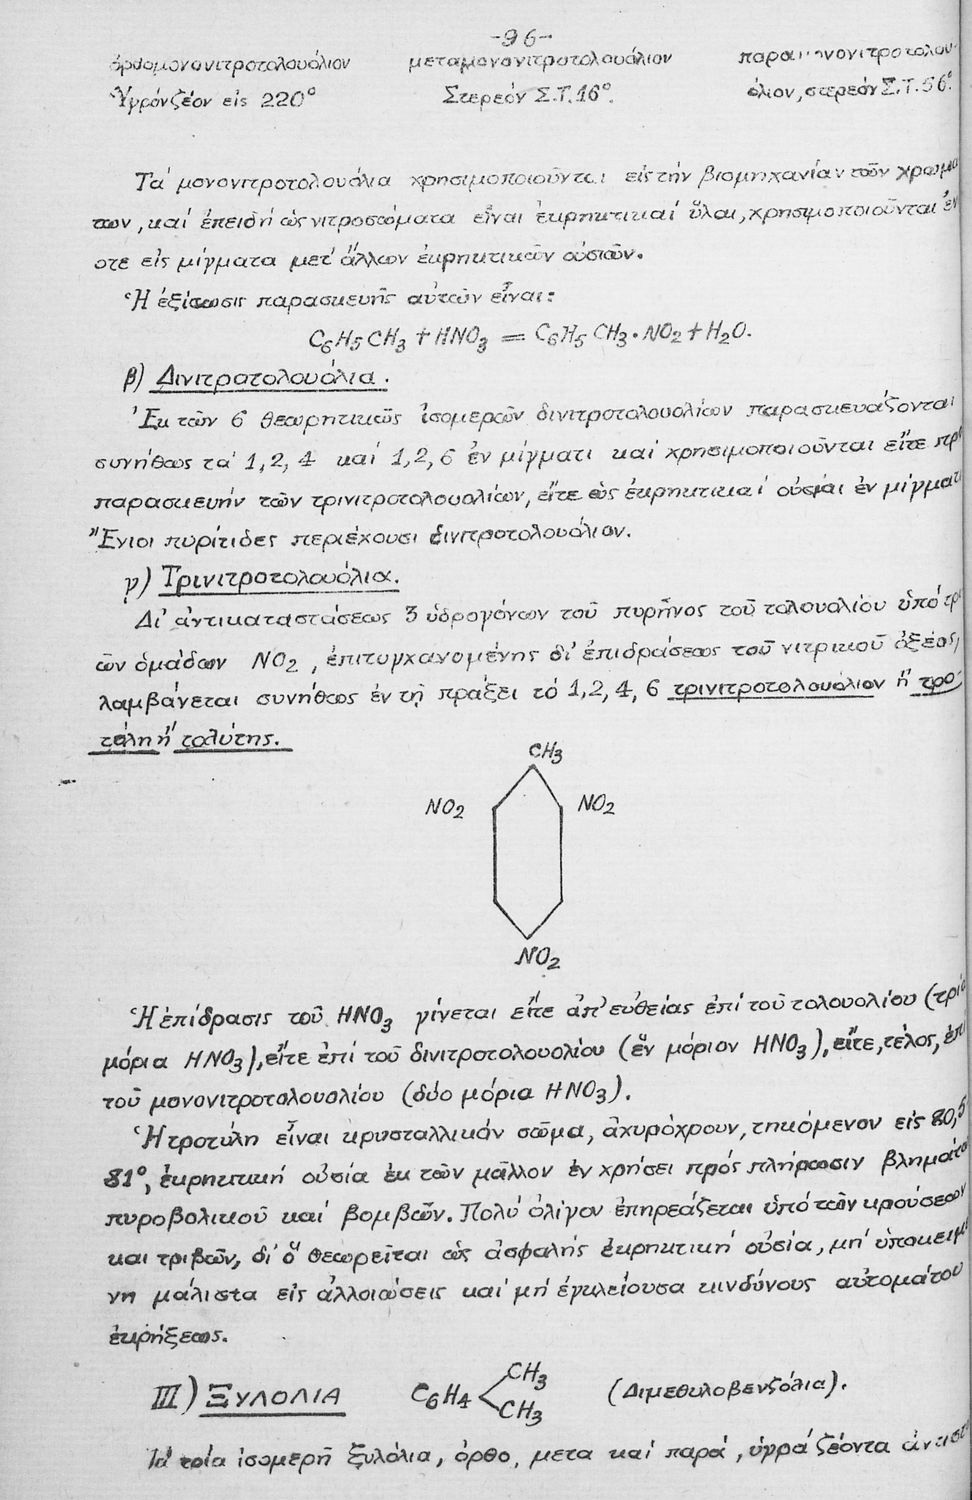 -96-
ὀρθομονονιτροτολουόλιον μεταμονονιτροτολουόλιον
Ὑγρόν ζέον εἰς 220° Στερεόν Σ.Τ. 16°. όλιον, στερεόν Σ.Τ. 56°.
Τά μονονιτροτολουόλια χρησιμοποιοῦνται εἰς τήν βιομηχανίαν τῶν χρωμά
των, καί ἐπειδή ὡς νιτροσώματα εἶναι ἐκρηκτικαί ὗλαι, χρησιμοποιοῦνται ἐν
οτε εἰς μίγματα μετ' ἄλλων ἐκρηκτικῶν οὐσιῶν.
Ἡ ἐξίσωσις παρασκευῆς αὐτῶν εἶναι:
C6H5CH3 + HNO3 = C6H5CH3·NO2 + H2O.
β) Δινιτροτολουόλια.
Ἐκ τῶν 6 θεωρητικῶς ἰσομερῶν δινιτροτολουολίων παρασκευάζονται
συνήθως τά 1,2,4 καί 1,2,6 ἐν μίγματι καί χρησιμοποιοῦνται εἴτε πρ
παρασκευήν τῶν τρινιτροτολουολίων, εἴτε ὡς ἐκρηκτικαί οὐσίαι ἐν μίγματι
Ἔνιοι πυρίτιδες περιέχουσι δινιτροτολουόλιον.
γ) Τρινιτροτολουόλια.
Δι' ἀντικαταστάσεως 3 ὑδρογόνων τοῦ πυρῆνος τοῦ τολουολίου ὑπό τρι
ῶν ὁμάδων NO2, ἐπιτυγχανομένης δι' ἐπιδράσεως τοῦ νιτρικοῦ ὀξέος,
λαμβάνεται συνήθως ἐν τῇ πράξει τό 1,2,4,6 τρινιτροτολουόλιον ἤ τρο-
τύλη ἤ τολύτης.
CH3
NO2 NO2
NO2
Ἡ ἐπίδρασις τοῦ HNO3 γίνεται εἴτε ἀπ' εὐθείας ἐπί τοῦ τολουολίου (τρία
μόρια HNO3), εἴτε ἐπί τοῦ δινιτροτολουολίου (ἕν μόριον HNO3), εἴτε, τέλος, ἐπί
τοῦ μονονιτροτολουολίου (δύο μόρια HNO3).
Ἡ τροτύλη εἶναι κρυσταλλικόν σῶμα, ἀχυρόχρουν, τηκόμενον εἰς 80,5
81°, ἐκρηκτική οὐσία ἐκ τῶν μᾶλλον ἐν χρήσει πρός πλήρωσιν βλημάτω
πυροβολικοῦ καί βομβῶν. Πολύ ὀλίγον ἐπηρεάζεται ὑπό τῶν κρούσεων
και τριβῶν, δι' ὅ θεωρεῖται ὡς ἀσφαλής ἐκρηκτική οὐσία, μή ὑποκειμέ
νη μάλιστα εἰς ἀλλοιώσεις καί μή ἐγκλείουσα κινδύνους αὐτομάτου
ἐκρήξεως.
III) ΞΥΛΟΛΙΑ C6H4 CH3 CH3 (Διμεθυλοβενζόλια).
Τά τρία ἰσομερῆ ξυλόλια, ὀρθο, μετα καί παρά, ὑγρά ζέοντα